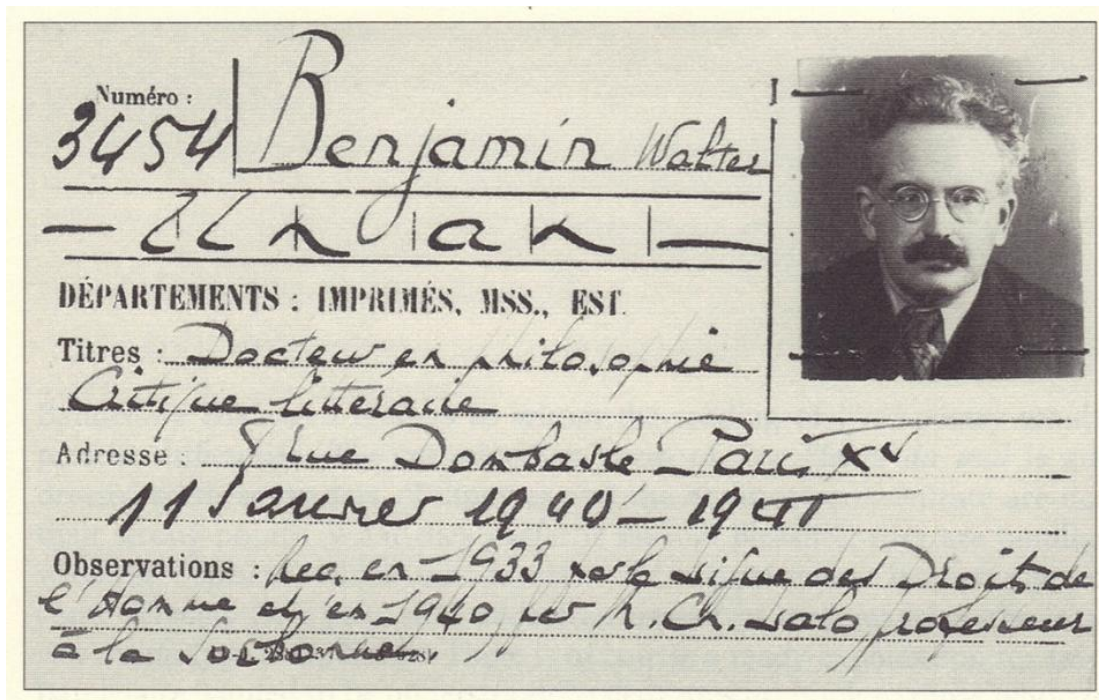 Numéro :
3454 Benjamin Walter
DÉPARTEMENTS : IMPRIMÉS, MSS., EST.
Titres : Docteur en philosophie
Critique littéraire
Adresse : rue Dombasle Paris XV
11 Janvier 1940 – 1941
Observations : Rec. en 1933 par la Ligue des Droits de
l'Homme et en 1940 par M. Ch. Lalo professeur
à la Sorbonne